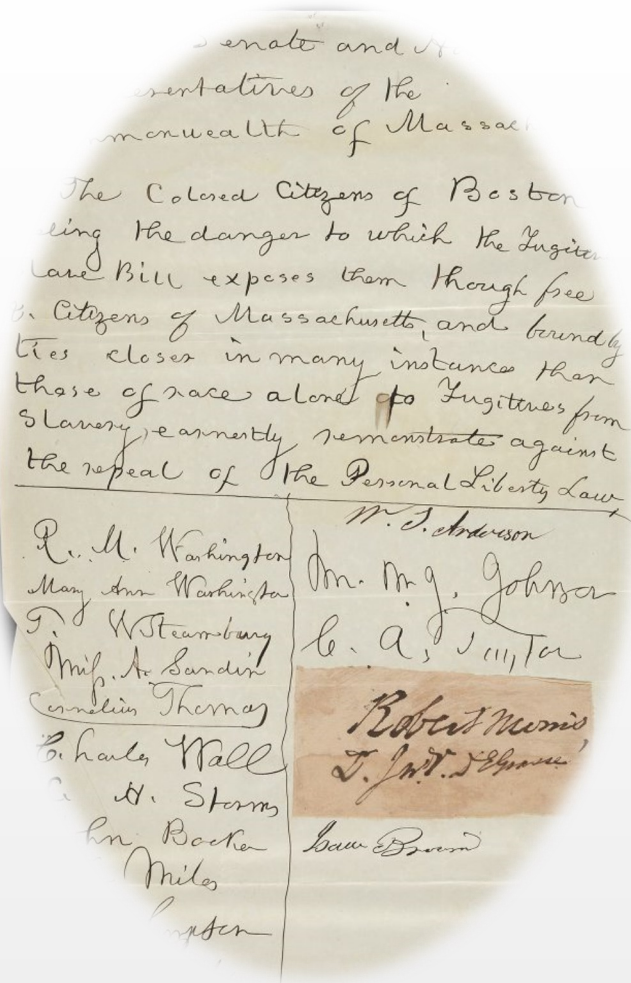 enate and
esentatives of the
mmonwealth of Massac
The Colored Citizens of Boston
eing the danger to which the Fugitiv
lave Bill exposes them though free
Citizens of Massachusetts, and bound by
ties closer in many instances than
those of race alone to Fugitives from
Slavery, earnestly remonstrate against
the repeal of the Personal Liberty Law
R. M. Washington
Mary Ann Washington
T. W Stearnsburg
Miss. A. Sandin
Cornelius Thomas
Charles Wall
H. Storms
hn Backer
Miles
mpson
W. T. Anderson
Wm. Johnson
C. A.
Robert Morris
D.
Isaac Brown